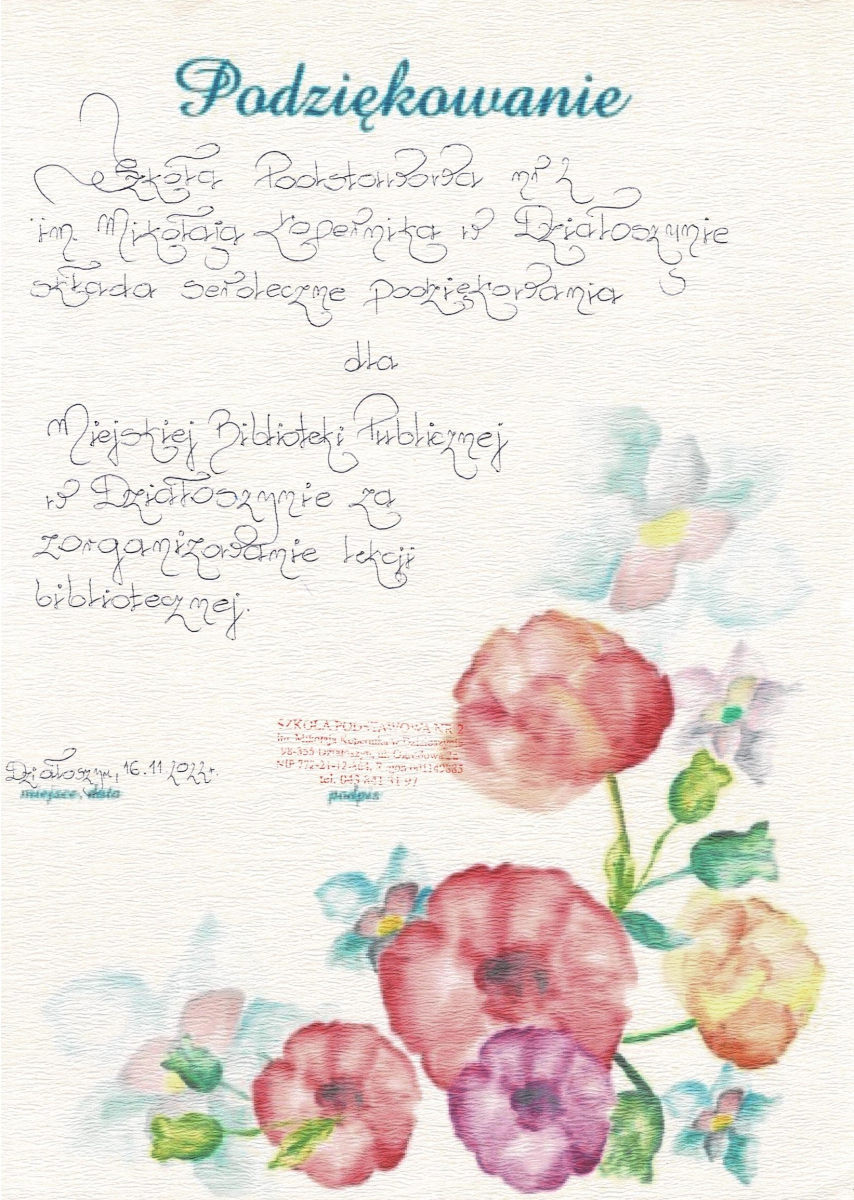 Podziękowanie
Szkoła Podstawowa nr 2
im. Mikołaja Kopernika w Działoszynie
składa serdeczne podziękowania
dla
Miejskiej Biblioteki Publicznej
w Działoszynie za
zorganizowanie lekcji
bibliotecznej.
SZKOŁA PODSTAWOWA NR 2
im. Mikołaja Kopernika w Działoszynie
98-355 Działoszyn, ul.
NIP
tel. 043 841 31 97
Działoszyn, 16.11.2022r.
miejsce, data podpis